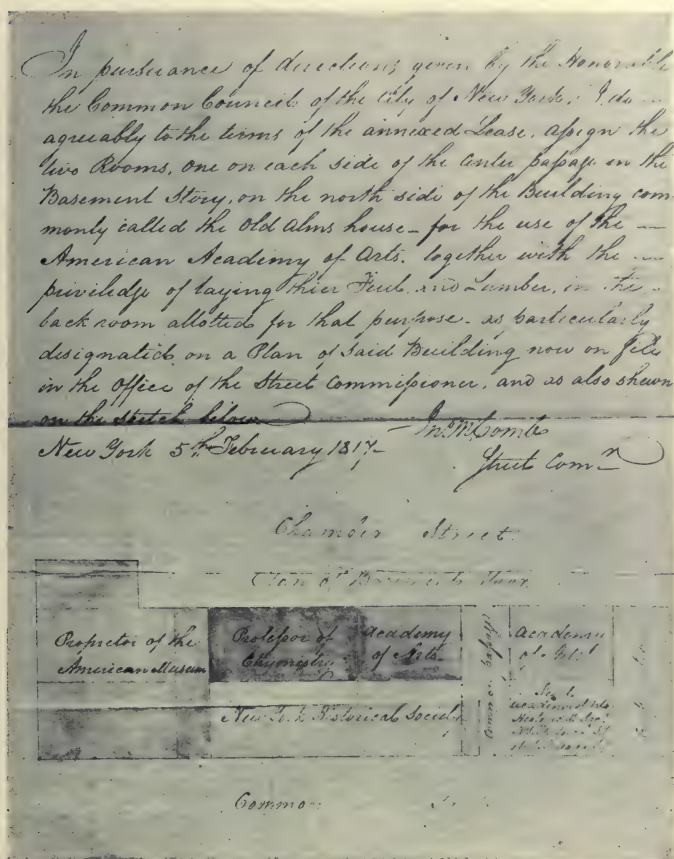 In pursuance of directions given by the Honorable
the Common Council of the City of New York, I do
agreeably to the terms of the annexed Lease, assign the
two Rooms, one on each side of the Center passage in the
Basement Story, on the north side of the Building com
monly called the Old Alms house – for the use of the
American Academy of Arts, together with the
priviledge of laying thier Fuel and Lumber, in the
back room allotted for that purpose – as particularly
designated on a Plan of said Building now on file
in the Office of the Street Commissioner, and as also shewn
on the sketch below
Jno McComb
New York 5th February 1817 –
Street Comr
Chamber Street
Plan of Basement Story
Proprietor of the
American Museum
Professor of
Chymistry
Academy
of Arts
Common Passage
Academy
of Arts
New York Historical Society
Common